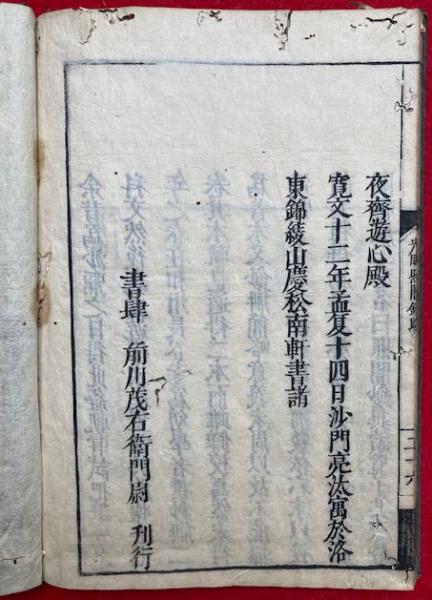 夜齊遊心殿
寛文十二年孟夏十四日沙門亮汰寓於洛
東錦綾山慶松南軒書諸
書肆 前川茂右衛門尉 刊行
二十六